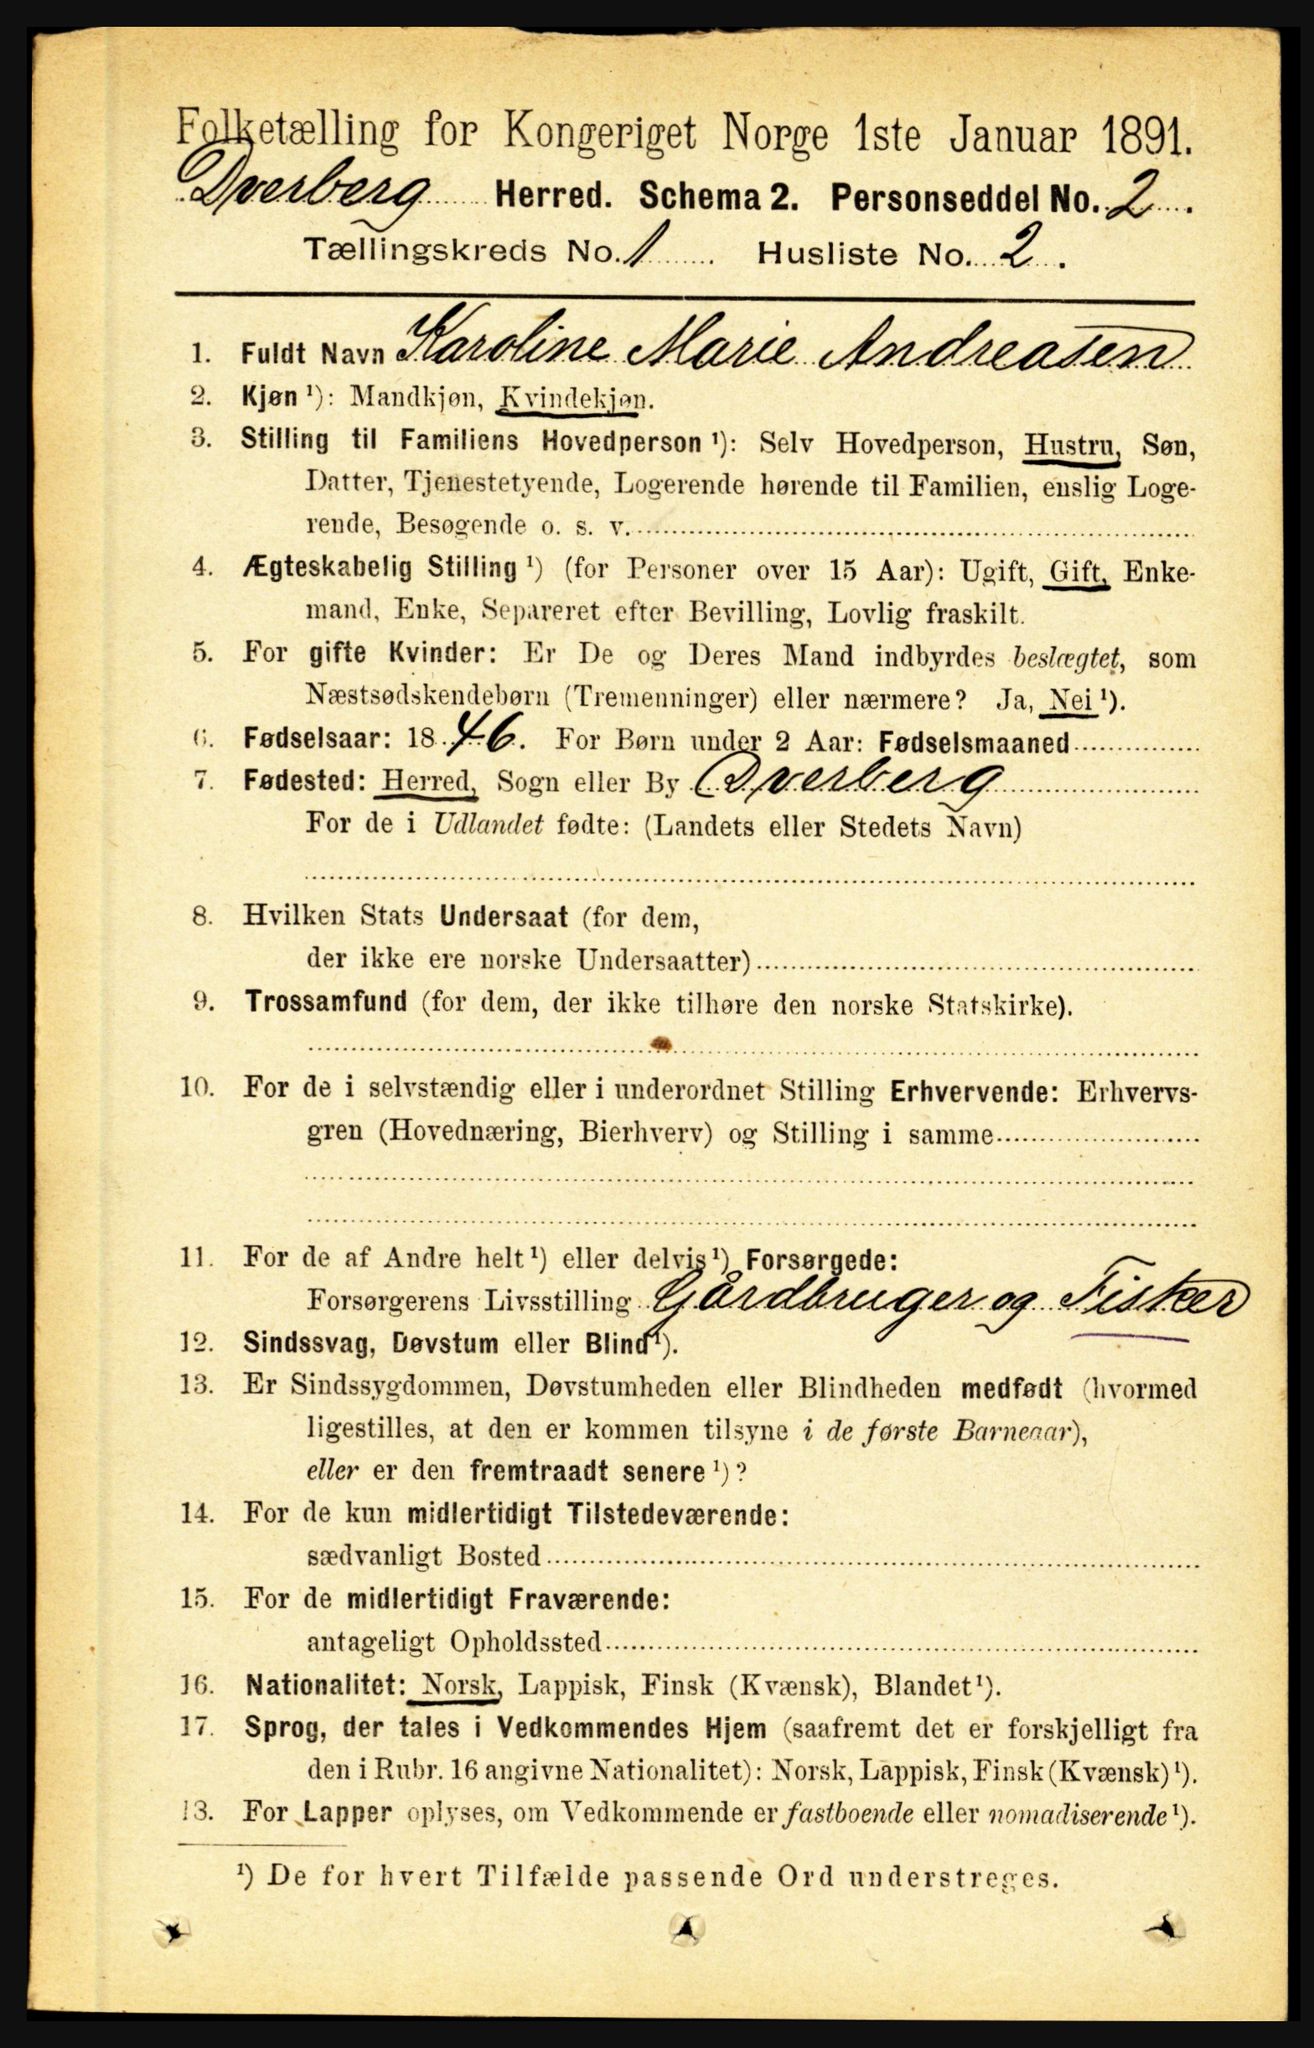 Folketælling for Kongeriget Norge 1ste Januar 1891.
Dverberg Herred. Schema 2. Personseddel No. 2.
Tællingskreds No. 1 Husliste No. 2.
1. Fuldt Navn Karoline Marie Andreasen
2. Kjøn ¹): Mandkjøn, Kvindekjøn.
3. Stilling til Familiens Hovedperson ¹): Selv Hovedperson, Hustru, Søn,
Datter, Tjenestetyende, Logerende hørende til Familien, enslig Loge-
rende, Besøgende o. s. v.
4. Ægteskabelig Stilling ¹) (for Personer over 15 Aar): Ugift, Gift, Enke-
mand, Enke, Separeret efter Bevilling, Lovlig fraskilt.
5. For gifte Kvinder: Er De og Deres Mand indbyrdes beslægtet, som
Næstsødskendebørn (Tremenninger) eller nærmere? Ja, Nei ¹).
6. Fødselsaar: 1846. For Børn under 2 Aar: Fødselsmaaned
7. Fødested: Herred, Sogn eller By Dverberg
For de i Udlandet fødte: (Landets eller Stedets Navn)
8. Hvilken Stats Undersaat (for dem,
der ikke ere norske Undersaatter)
9. Trossamfund (for dem, der ikke tilhøre den norske Statskirke).
10. For de i selvstændig eller i underordnet Stilling Erhvervende: Erhvervs-
gren (Hovednæring, Bierhverv) og Stilling i samme
11. For de af Andre helt ¹) eller delvis ¹) Forsørgede:
Forsørgerens Livsstilling Gårdbruger og Fisker
12. Sindssvag, Døvstum eller Blind ¹).
13. Er Sindssygdommen, Døvstumheden eller Blindheden medfødt (hvormed
ligestilles, at den er kommen tilsyne i de første Barneaar),
eller er den fremtraadt senere ¹)?
14. For de kun midlertidigt Tilstedeværende:
sædvanligt Bosted
15. For de midlertidigt Fraværende:
antageligt Opholdssted
16. Nationalitet: Norsk, Lappisk, Finsk (Kvænsk), Blandet ¹).
17. Sprog, der tales i Vedkommendes Hjem (saafremt det er forskjelligt fra
den i Rubr. 16 angivne Nationalitet): Norsk, Lappisk, Finsk (Kvænsk) ¹).
13. For Lapper oplyses, om Vedkommende er fastboende eller nomadiserende ¹).
¹) De for hvert Tilfælde passende Ord understreges.